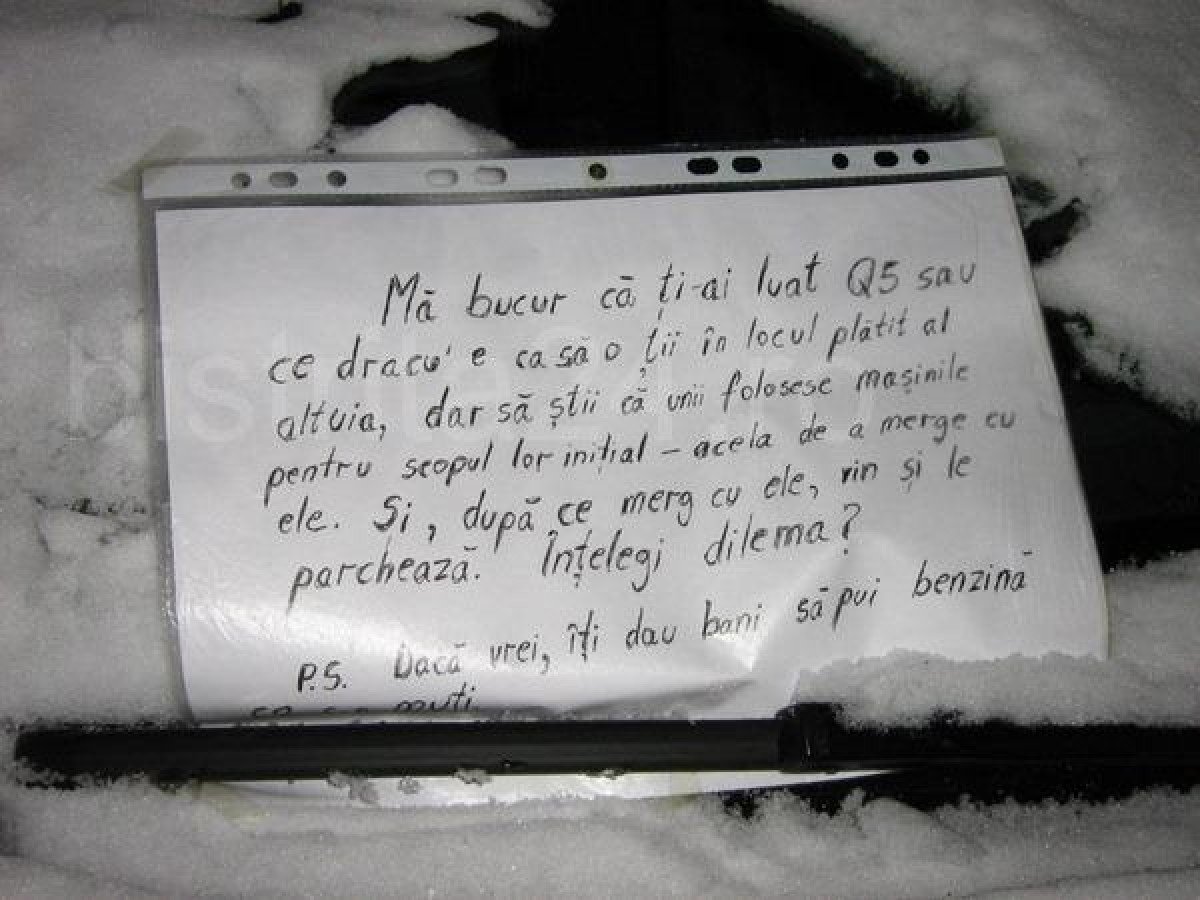 Mă bucur că ți-ai luat Q5 sau
ce dracu' e ca să o ții în locul plătit al
altuia, dar să știi că unii folosesc mașinile
pentru scopul lor inițial – acela de a merge cu
ele. Și, după ce merg cu ele, vin și le
parchează. Înțelegi dilema?
P.S. Dacă vrei, îți dau bani să pui benzină
muți